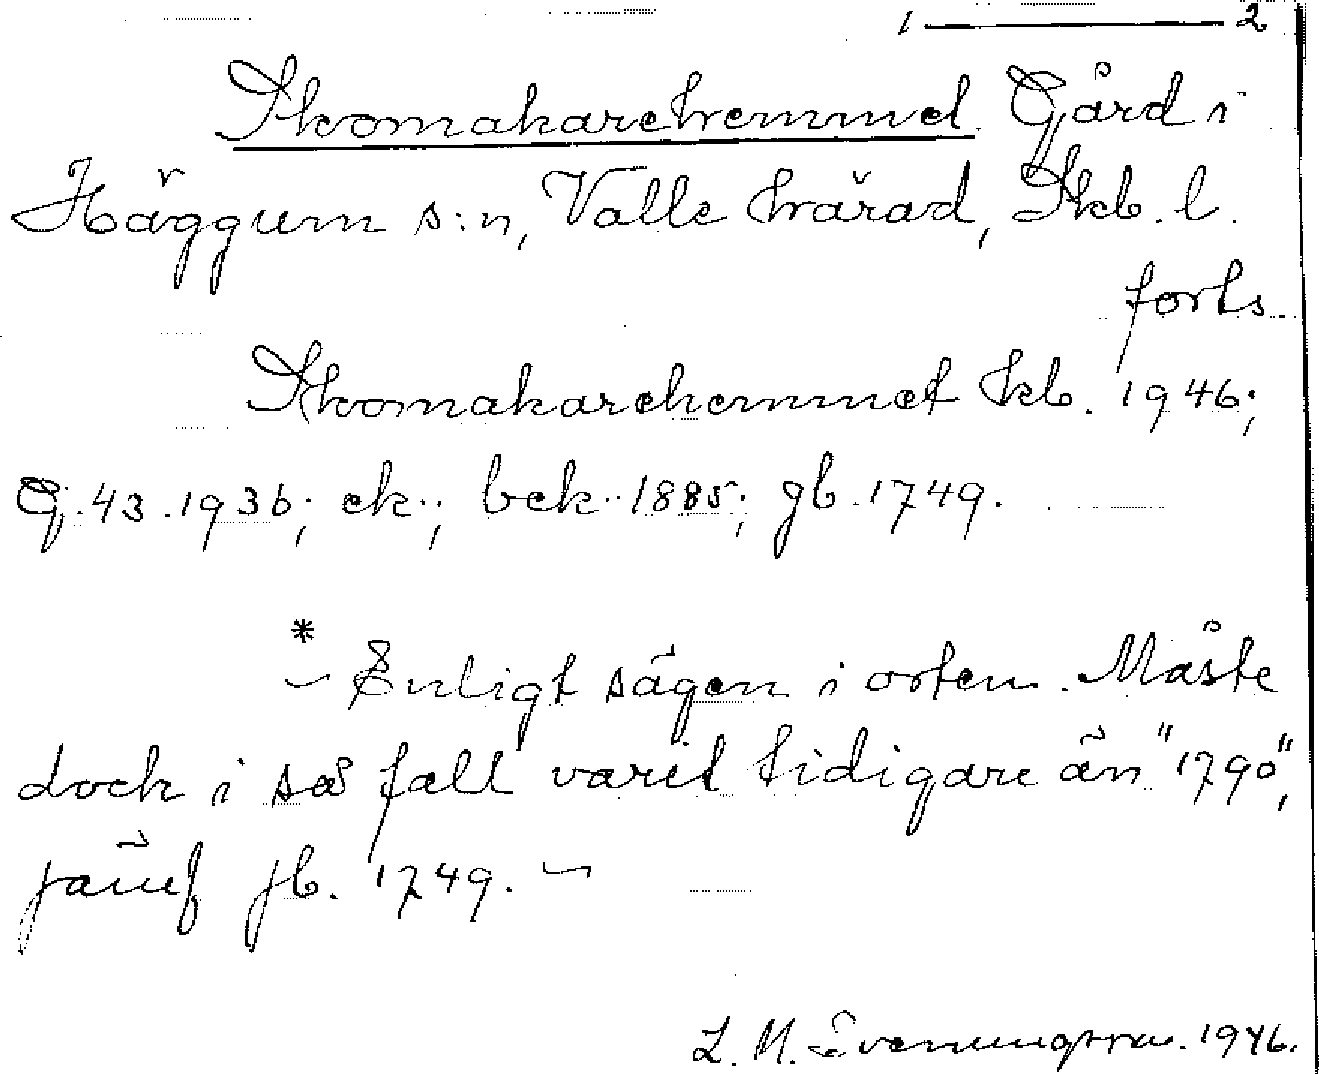 1 — 2
Skomakarehemmet Gård i
Häggum s:n, Valle härad, Skb. l.
forts.
Skomakarehemmet kb. 1946;
G. 43. 1936; ek.; bek. 1885; jb. 1749.
*
— Enligt sägen i orten. Måste
dock i så fall varit tidigare än "1790",
jämf jb. 1749. —
L. M. Svenungsson. 1946.